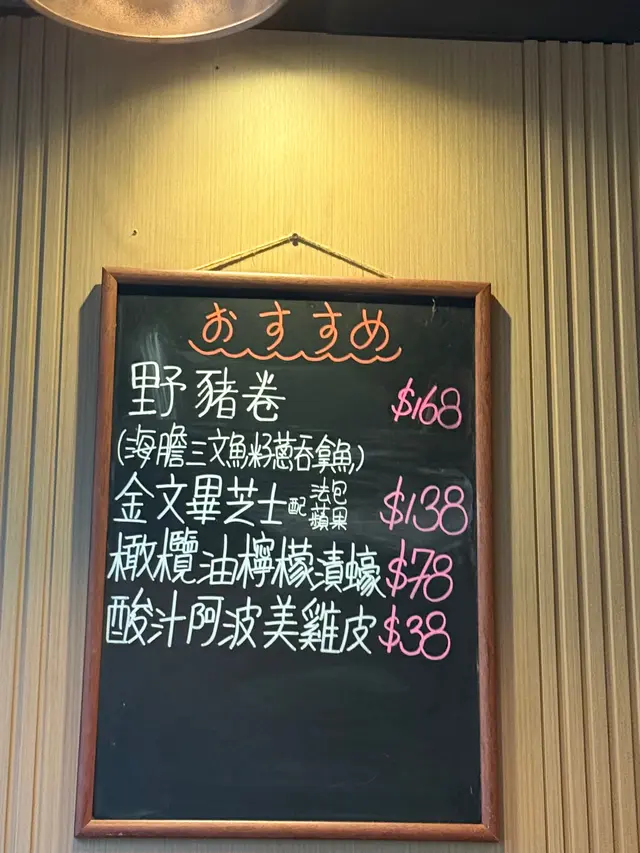 おすすめ
野豬卷 $168
(海膽三文魚籽蔥吞拿魚)
金文畢芝士配法包蘋果 $138
橄欖油檸檬漬蠔 $78
酸汁阿波美雞皮 $38